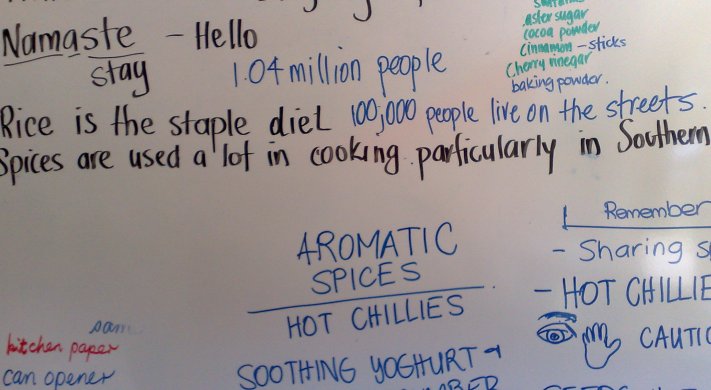 Namaste - Hello
stay
1.04 million people
aster sugar
cocoa powder
Cinnamon - sticks
Cherry vinegar
baking powder.
Rice is the staple diet 100,000 people live on the streets.
Spices are used a lot in cooking particularly in Southern
AROMATIC
SPICES
HOT CHILLIES
SOOTHING YOGHURT +
Remember
- Sharing
- HOT CHILLIE
CAUTIO
sam
kitchen paper
can opener